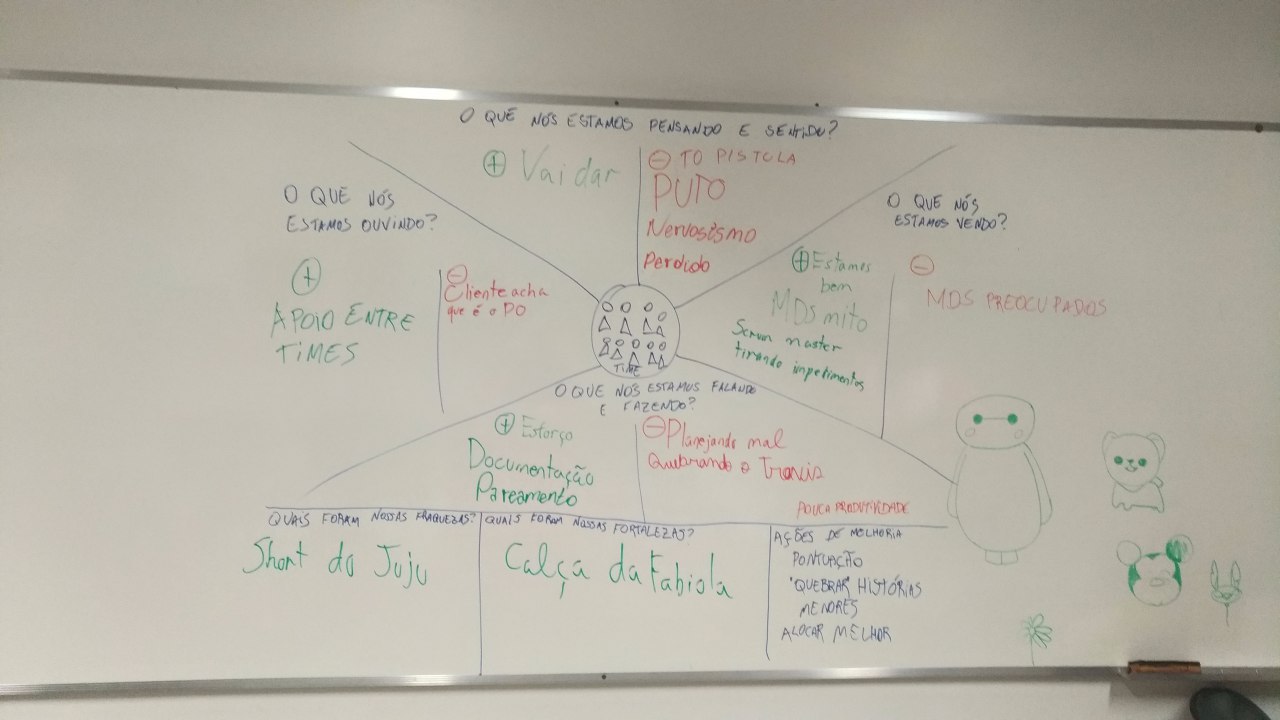 O QUÊ NÓS ESTAMOS PENSANDO E SENTIDO?
+ Vai dar
- TO PISTOLA
PUTO
Nervosismo
Perdido
O QUE NÓS
ESTAMOS OUVINDO?
+
APOIO ENTRE
TIMES
-
Cliente acha
que é o PO
O QUE NÓS
ESTAMOS VENDO?
+ Estamos
bem
MDS mito
Scrum master
tirando impedimentos
-
MDS PREOCUPADOS
TIME
O QUE NÓS ESTAMOS FALANDO
E FAZENDO?
+ Esforço
Documentação
Pareamento
- Planejando mal
Quebrando o Travis
POUCA PRODUTIVIDADE
QUAIS FORAM NOSSAS FRAQUEZAS?
Short do Juju
QUAIS FORAM NOSSAS FORTALEZAS?
Calça da Fabiola
AÇÕES DE MELHORIA
PONTUAÇÃO
"QUEBRAR" HISTÓRIAS
MENORES
ALOCAR MELHOR